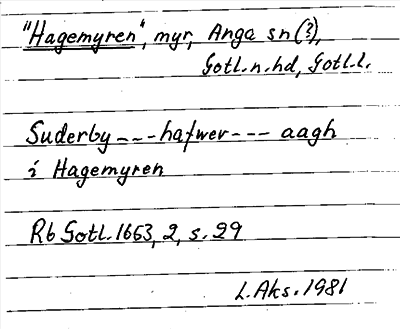 "Hagemyren", myr, Anga sn (?),
Gotl.n.hd, Gotl.l.
Suderby --- hafwer --- aagh
i Hagemyren
Rb Gotl. 1653, 2, s. 29
L. Aks. 1981